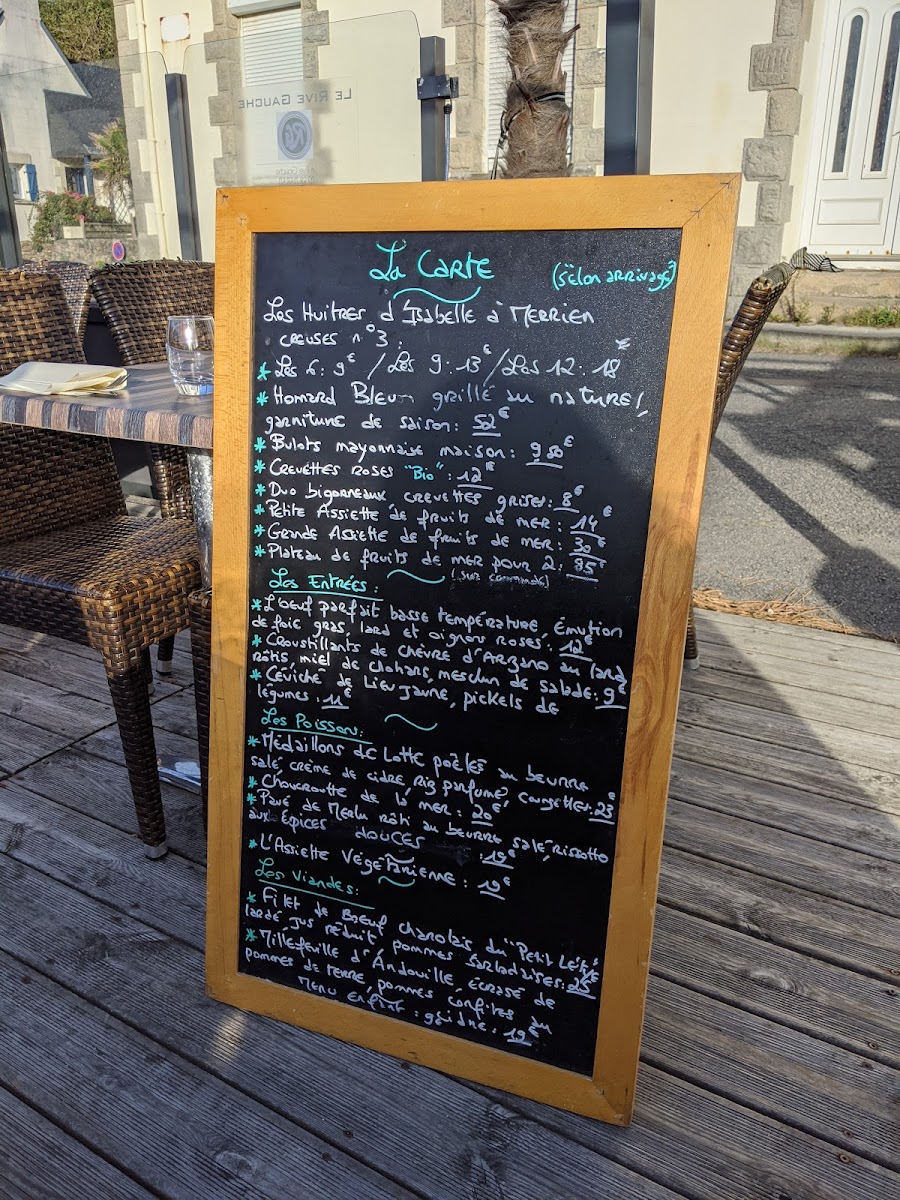 LE RIVE GAUCHE
RG
La Carte
(selon arrivage)
Les Huitres d'Isabelle à Merrien
creuses n°3:
* Les 6: 9€ / Les 9: 13€ / Les 12: 18€
* Homard Bleu grillé au naturel,
garniture de saison: 52€
* Bulots mayonnaise maison: 9 50€
* Crevettes roses "Bio": 12€
* Duo bigorneaux crevettes grises: 8€
* Petite Assiette de fruits de mer: 14€
* Grande Assiette de fruits de mer: 30€
* Plateau de fruits de mer pour 2: 85€
(sur commande)
Les Entrées:
* L'oeuf parfait basse température, émution
de foie gras, lard et oignon roses: 12€
* Croustillants de chèvre d'Arzano au lard
rôtis, miel de Clohars, mesclun de salade: 9€
* Céviche de Lieu jaune, pickels de
légumes: 11€
Les Poissons:
* Médaillons de Lotte poêlés au beurre
salé crème de cidre, Riz parfumé, courgettes: 23€
* Choucroutte de la mer: 20€
* Pavé de Merlu rôti au beurre salé, risotto
aux épices douces: 19€
* L'Assiette Végétarienne: 19€
Les Viandes:
* Filet de Boeuf charolais du "Petit Lété"
lardé jus réduit, pommes sarladaises: 25€
* Millefeuille d'Andouille, écrasé de
pommes de terre, pommes confites au
19€
Menu Enfant: